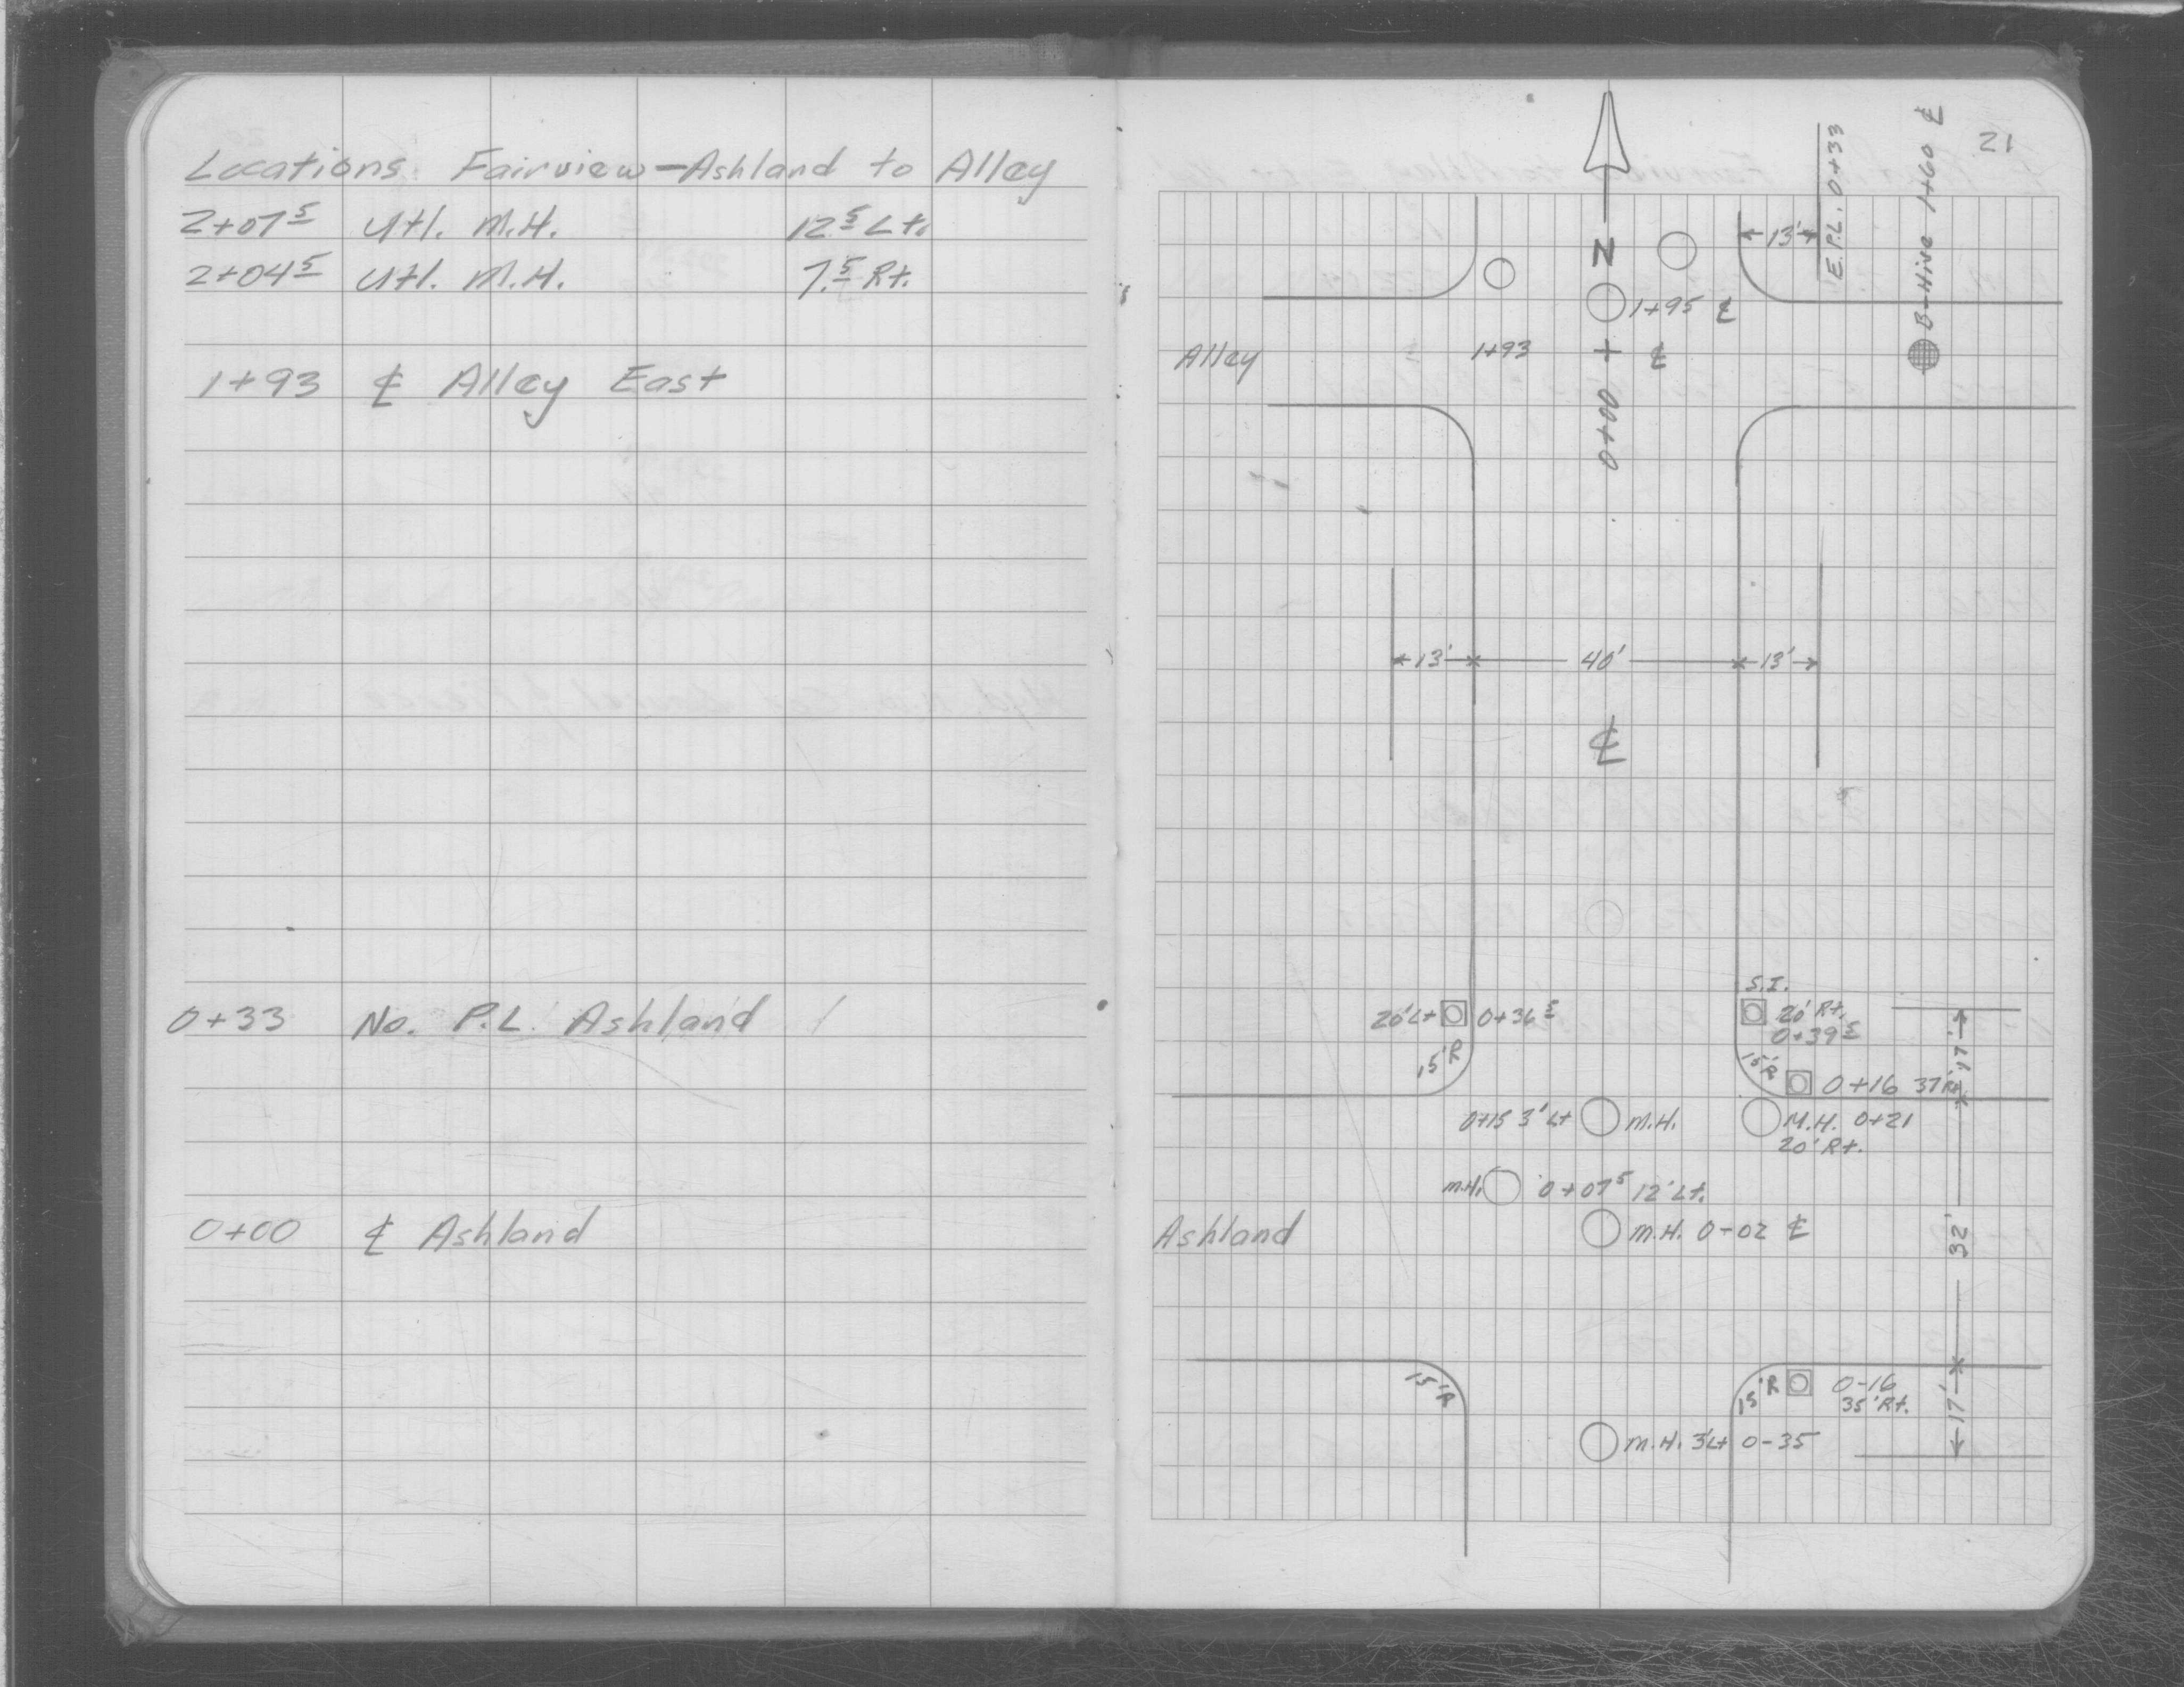 Locations Fairview-Ashland to Alley
2+07⁵ Utl. M.H. 12⁵ Lt.
2+04⁵ Utl. M.H. 7.⁵ Rt.
1+93 ℄ Alley East
0+33 No. P.L. Ashland
0+00 ℄ Ashland
21
E.P.L. 0+33
B-Hive 1+60 ℄
N
13'
1+95 ℄
Alley
1+93
℄
0+00
13' 40' 13'
℄
S.I.
20' Lt 0+36⁵
20' Rt.
0+39⁵
15'R
15'R
17'
0+16 37' Rt.
0+15 3' Lt M.H.
M.H. 0+21
20' Rt.
M.H. 0+07⁵ 12' Lt.
Ashland
M.H. 0-02 ℄
32'
15'R
15'R
0-16
35' Rt.
17'
M.H. 3' Lt 0-35